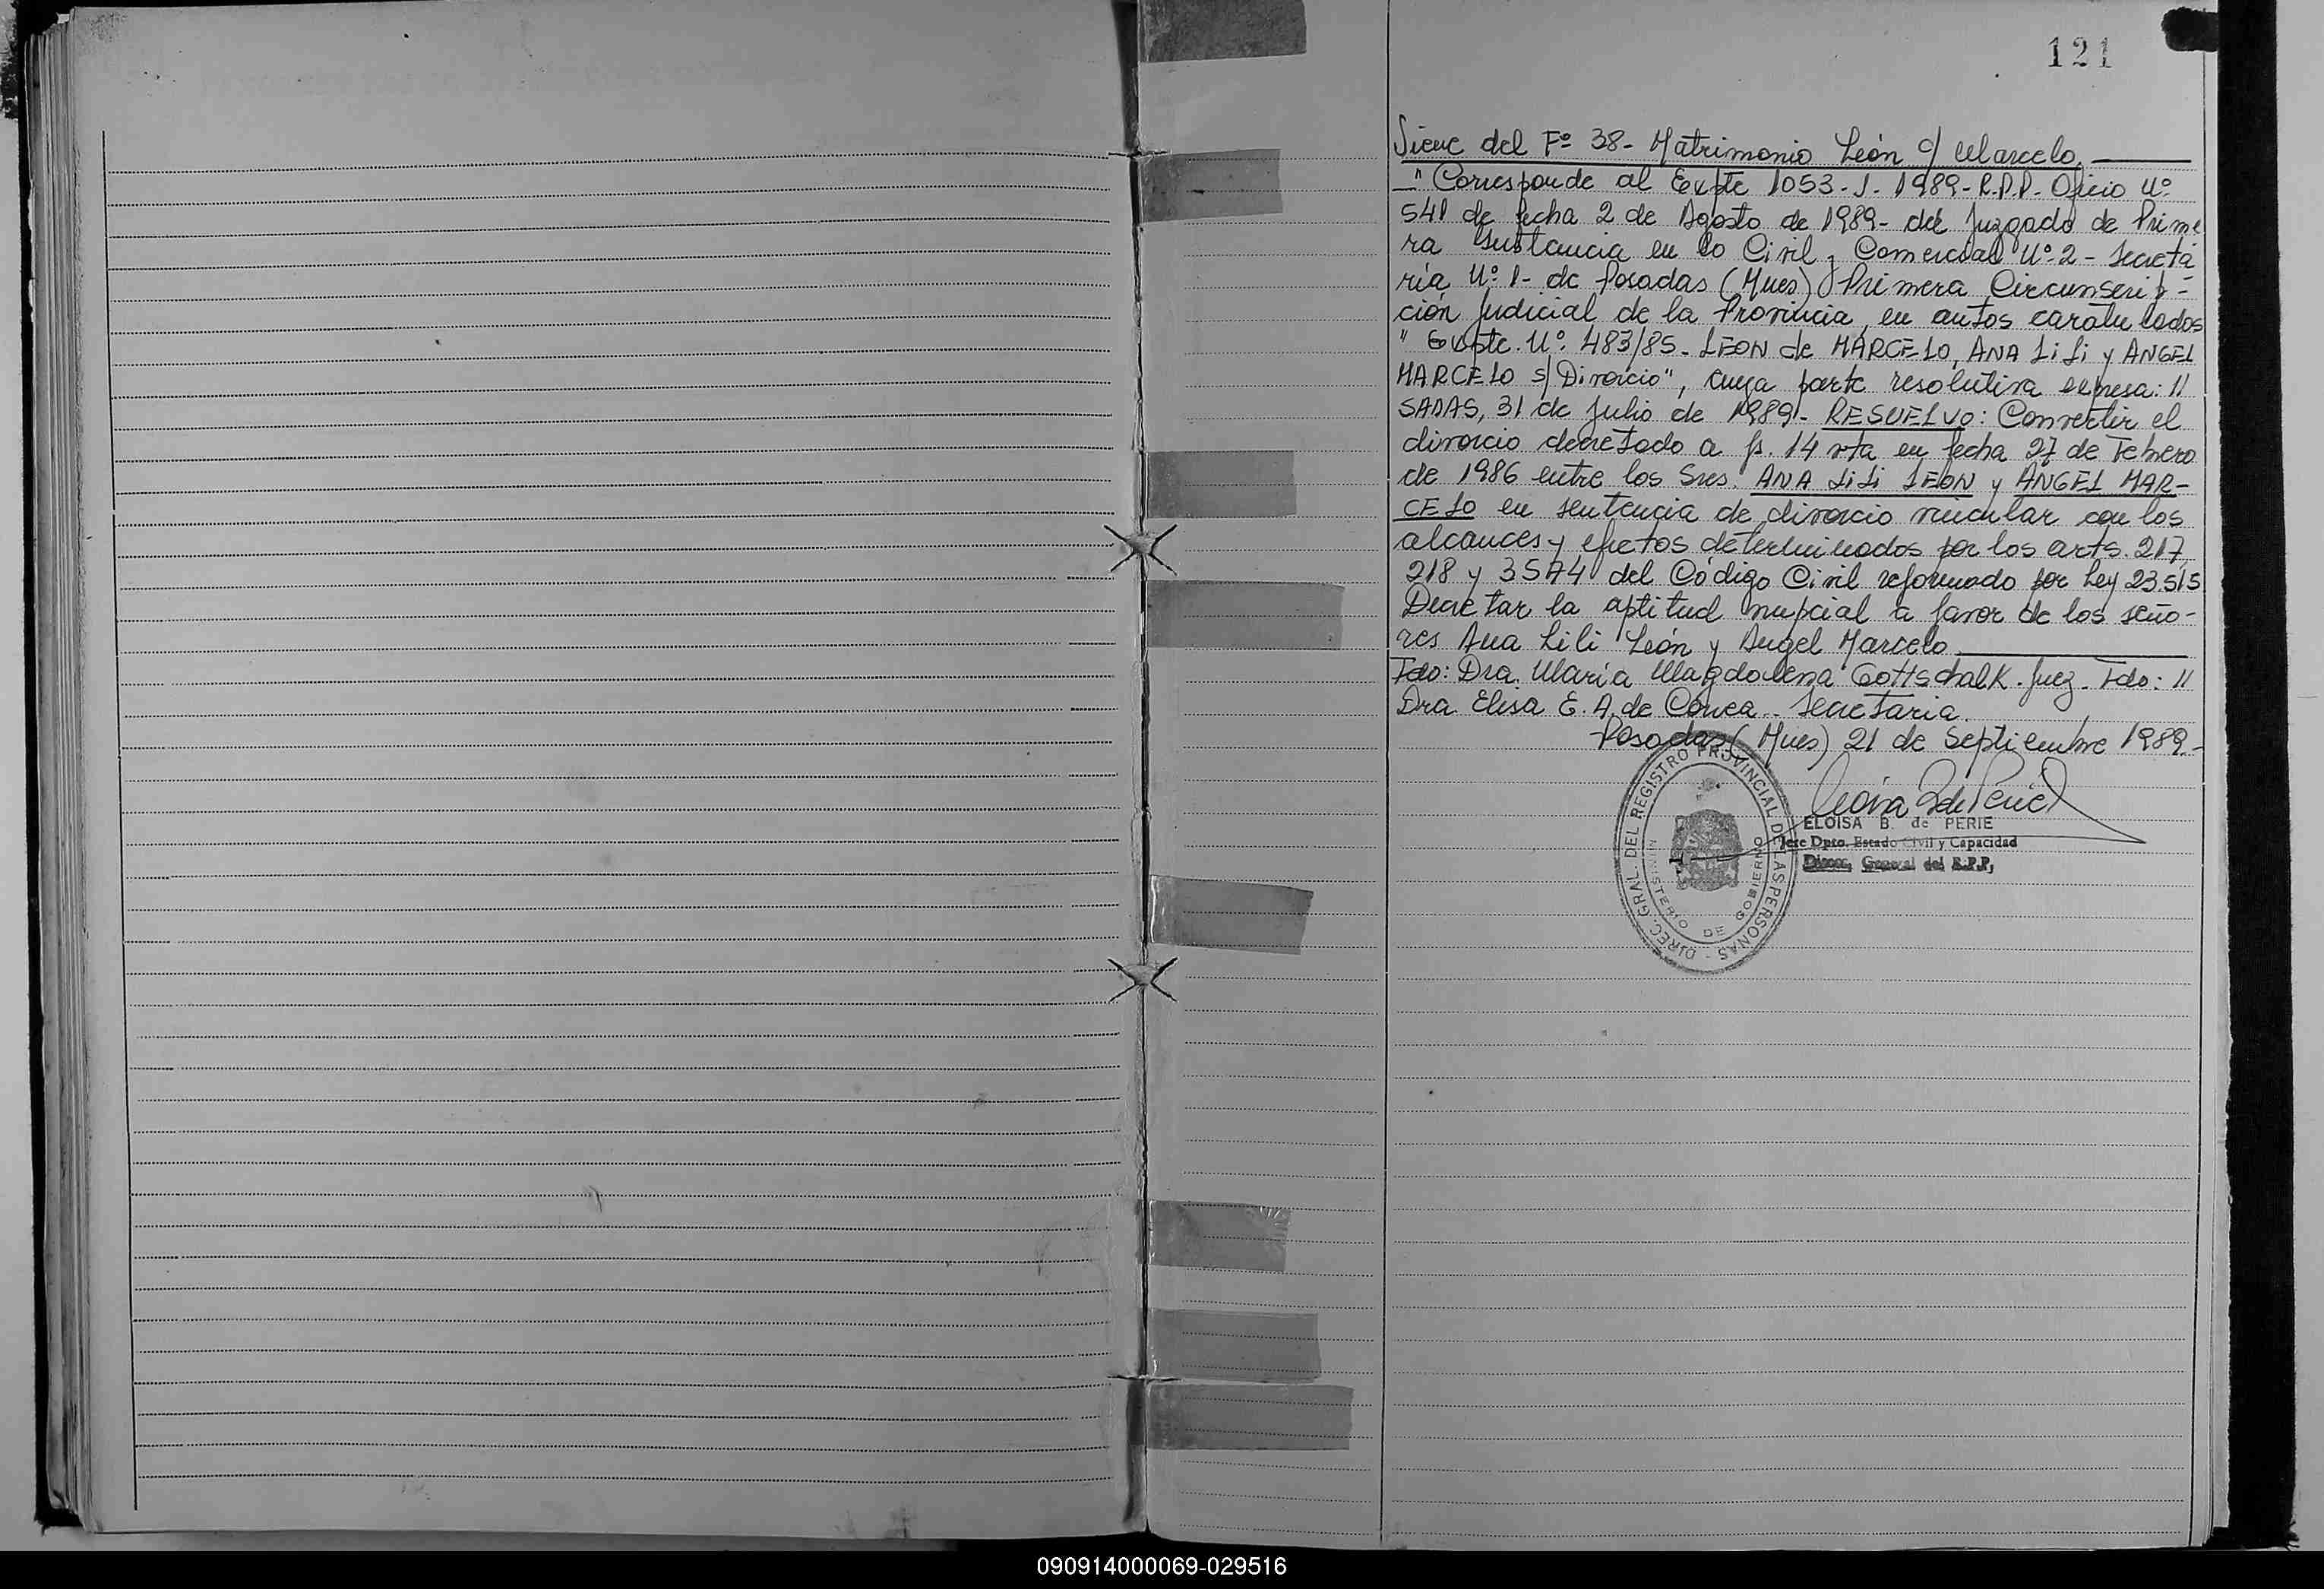 121
Viene del Fº 38- Matrimonio León c/ Marcelo.
-" Corresponde al Expte 1053-J-1989-R.P.P- Oficio Nº
541 de fecha 2 de Agosto de 1989- del Juzgado de Prime
ra Instancia en lo Civil y Comercial Nº 2- Secreta
ría Nº 1- de Posadas (Mnes) Primera Circunscrip-
ción Judicial de la Provincia, en autos caratulados
" Expte. Nº 483/85- LEON de MARCELO, ANA LiLi y ANGEL
MARCELO s/ Divorcio", cuya parte resolutiva expresa: //
SADAS, 31 de Julio de 1989- RESUELVO: Convertir el
divorcio decretado a fs. 14 vta en fecha 27 de Febrero
de 1986 entre los Sres. ANA LiLi LEON y ANGEL MAR-
CELO en sentencia de divorcio vincular con los
alcances y efectos determinados por los arts. 217
218 y 3574 del Código Civil reformado por Ley 23.515
Decretar la aptitud nupcial a favor de los seño-
res Ana Lili León y Angel Marcelo
Fdo: Dra. María Magdalena Gottschalk. Juez. Fdo: //
Dra. Elisa E. A. de Correa - Secretaria.
Posadas (Mnes) 21 de Septiembre 1989.-
DIREC. GRAL. DEL REGISTRO PROVINCIAL DE LAS PERSONAS -
MINISTERIO DE GOBIERNO
ELOISA B. de PERIE
Jefe Dpto. Estado Civil y Capacidad
Direcc. General del R.P.P.
090914000069-029516